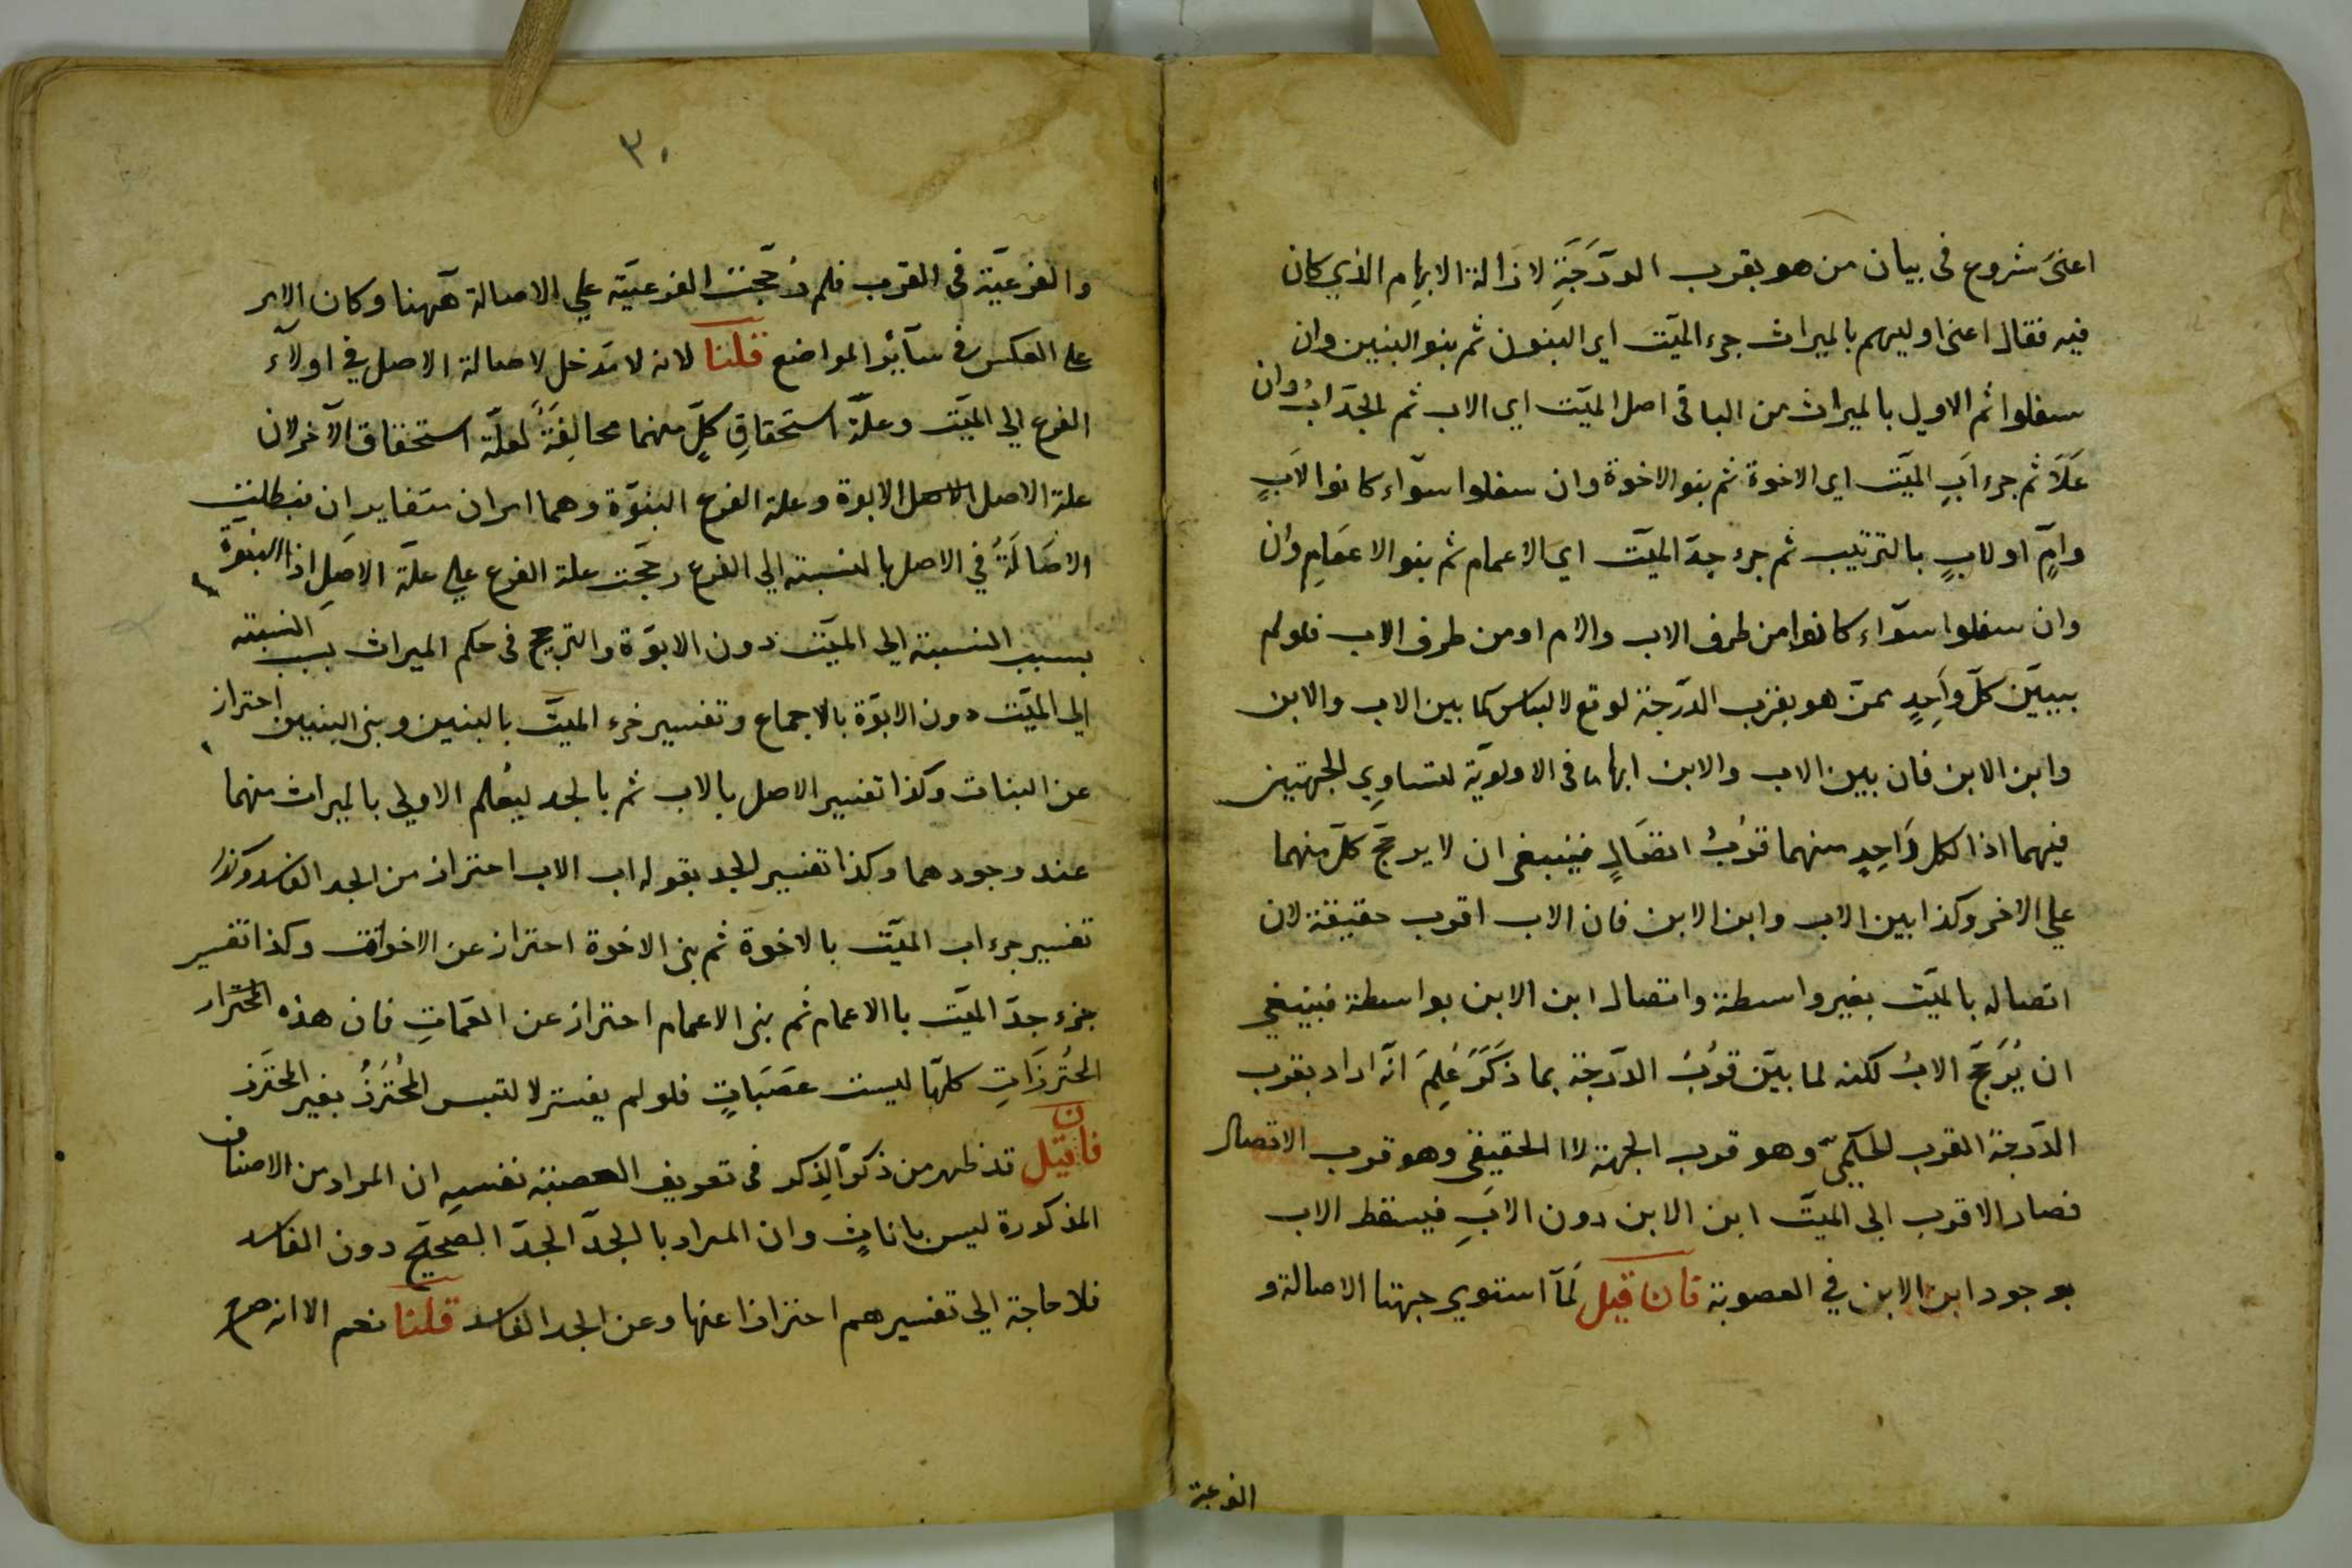 اعنى شروع فى بيان من هو بقرب الدرَجَةِ لازالة الابهام الذي كان
فيه فقال اعنى اوليهم بالميراث جزء الميّت اى البنون ثم بنو البنين وان
سفلوا ثم الاولى بالميراث من الباقى اصل الميّت اى الاب ثم الجدّ ابُ وان
عَلَا ثم جزء اَبِ الميّت اى الاخوة ثم بنو الاخوة وان سفلوا سوآء كانوا لاَبٍ
وامٍّ او لابٍ بالترتيب ثم جزء جدّ الميّت اى الاعمام ثم بنو الاعمَامِ وان
وان سفلوا سوآء كانوا من طرف الاب والام او من طرف الاب فلو لم
يبيّن كلّ واَحِدٍ ممّن هو بقرب الدّرجة لوقع لالباس كما بين الاب والابن
وابن الابن فان بين الاب والابن ابهاما فى الاولويّة لتساوِي الجهتين
فيهما اذا لكل وَاحِدٍ منهما قربُ اتصَالٍ فينبغى ان لا يرجَّح كلّ منهما
علي الاخر وكذا بين الاب وابن الابن فان الاب اقرب حقيقة لان
اتصاله بالميّت بغير واسطة واتصال ابن الابن بواسطة فينبغي
ان يُرَجَّح الابُ لكنه لما بيّن قربُ الدّرجة بما ذكَرَ عُلِمَ انّه اراد بقرب
الدّرجة القرب الحكمىّ وهو قرب الجهة لا الحقيقى وهو قرب الاتصال
فصار الاقرب الى الميّت ابن الابن دون الاَبِ فيسقط الاب
بوجود ابن الابن في العصوبة فان قيل لَمّا استوي جهتا الاصالة و
الفرعية
٣٠
والفرعيّة فى القرب فلم رُجّحت الفرعيّة علي الاصالة هٓهنا وكان الامر
على العكس فى سآئر المواضع قلنا لانه لا مَدخل لاصالة الاصل في اولآء
الفرع الي الميّت وعلّة استحقاقِ كلٍّ منهما مخالِفَةٌ لعلّة استحقاق الآخر لان
علة الاصل الاصل الابوة وعلة الفرع البنوّة وهما امران متغايرانِ فبطلت
الاصَالَةُ في الاصل بالنسبة الي الفرع رجّحت علة الفرع علي علّة الاصِل اذا البنوّة
بسبب النسبة الي الميّت دون الابوّة والترجيح فى حكم الميراث بسبب النسبة
الي الميّت دون الابوّة بالاجماع وتفسير جزء الميّت بالبنين وبنى البنين احتراز
عن البنات وكذا تفسير الاصل بالاب ثم بالجد ليُعلم الاولي بالميراث منهما
عند وجودهما وكذا تفسير الجد بقوله اب الاب احتراز من الجد الفاسد وكذا
تفسير جزء اب الميّت بالاخوة ثم بنى الاخوة احتراز عن الاخوات وكذا تفسير
جزء جدّ الميّت بالاعمام ثم بنى الاعمام احتراز عن العمّاتِ فان هذه
المحُترزَاتِ كلهّا ليست عَصَبَاتٍ فلو لم يفسّر لا لتبس المحُترَزُ بغير المحترَز
فان قيل قد ظهر من ذكر الذِكر فى تعريف العصبة نفسهِ ان المراد من الاصناف
المذكورة ليس باناثٍ وان المراد بالجدّ الجدّ الصحيح دون الفاسد
فلا حاجة الي تفسيرهم احترازا عنها وعن الجد الفاسد قلنا نعم الا انه صرح